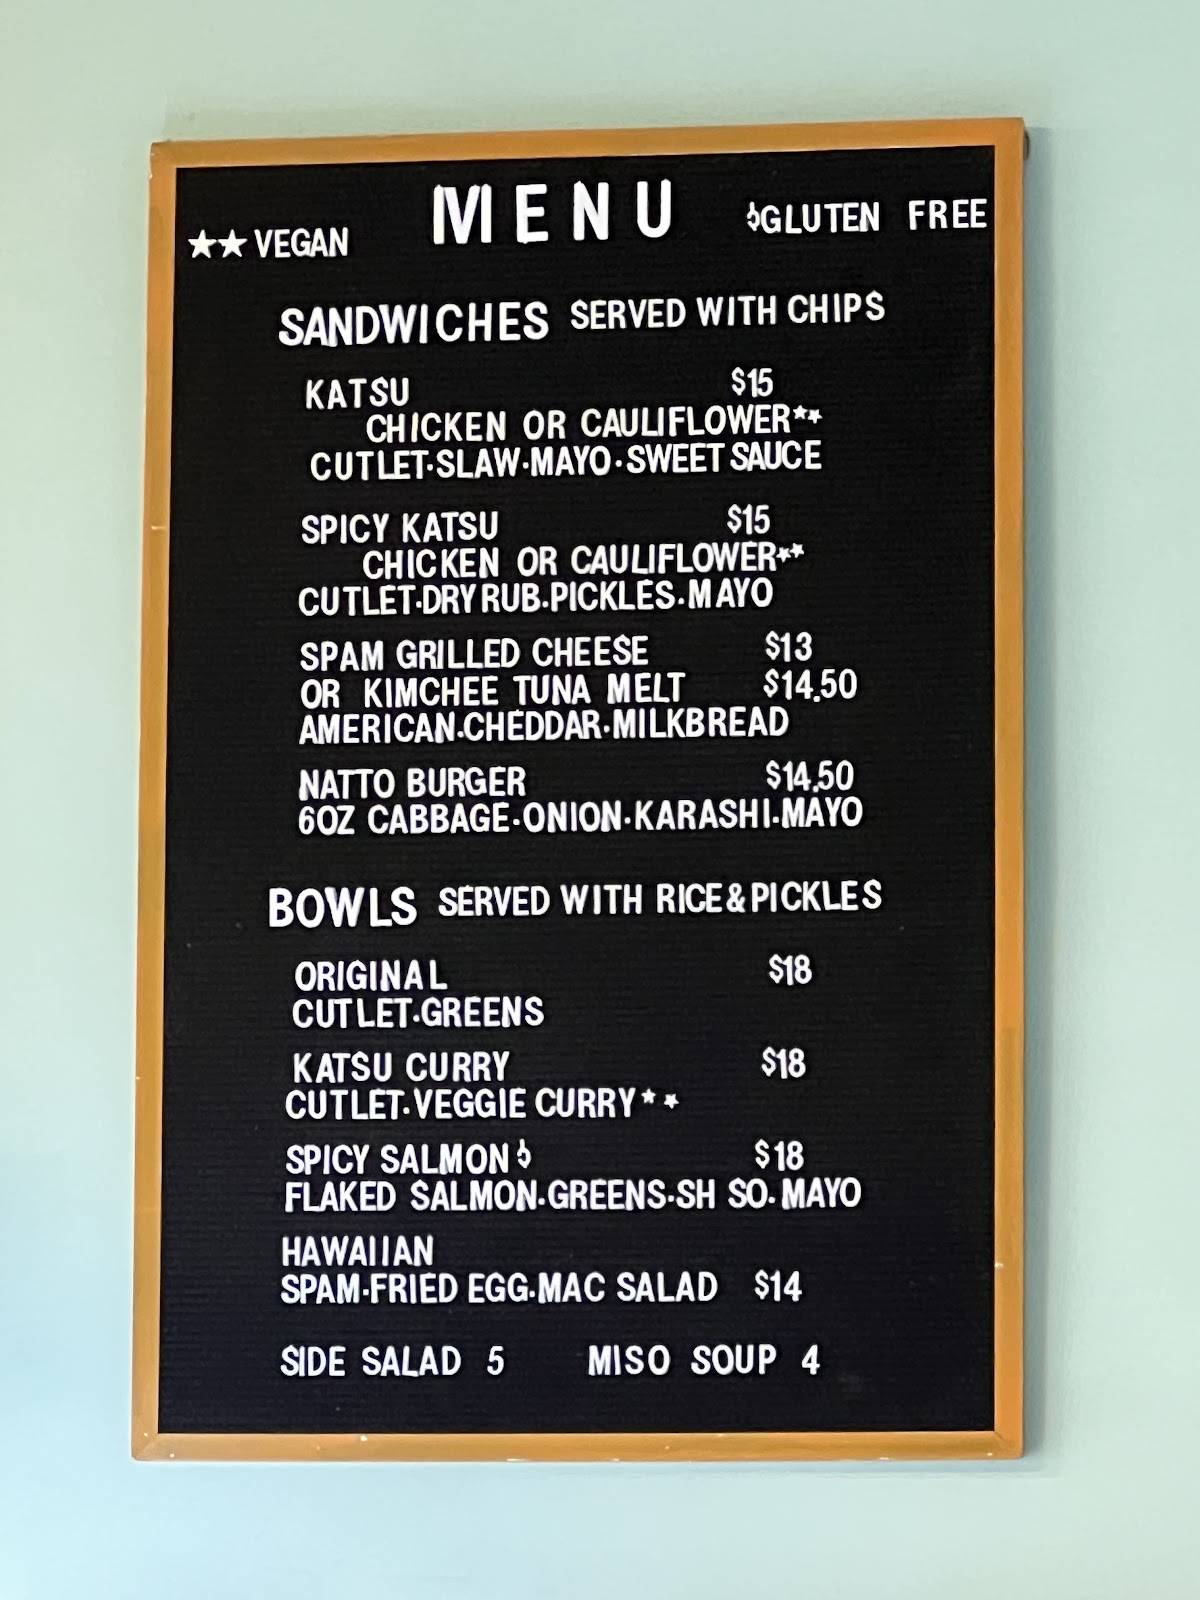 MENU
★★ VEGAN
GLUTEN FREE
SANDWICHES SERVED WITH CHIPS
KATSU $15
CHICKEN OR CAULIFLOWER★★
CUTLET·SLAW·MAYO·SWEET SAUCE
SPICY KATSU $15
CHICKEN OR CAULIFLOWER★★
CUTLET·DRY RUB·PICKLES·MAYO
SPAM GRILLED CHEESE $13
OR KIMCHEE TUNA MELT $14.50
AMERICAN·CHEDDAR·MILKBREAD
NATTO BURGER $14.50
6OZ CABBAGE·ONION·KARASHI·MAYO
BOWLS SERVED WITH RICE & PICKLES
ORIGINAL $18
CUTLET·GREENS
KATSU CURRY $18
CUTLET·VEGGIE CURRY★★
SPICY SALMON $18
FLAKED SALMON·GREENS·SH SO·MAYO
HAWAIIAN
SPAM·FRIED EGG·MAC SALAD $14
SIDE SALAD 5 MISO SOUP 4